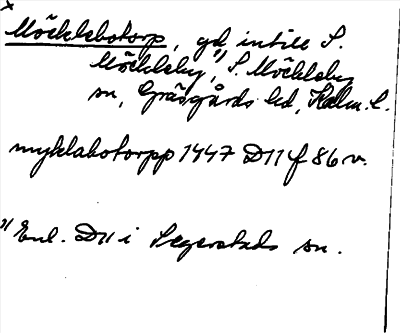 x
Möcklebotorp, gd, intill S.
Möckleby,¹⁾ S. Möckleby
sn, Gräsgårds hd, Kalm. l.
myklabotorpp 1447 D11 f 86 v.
1) Enl. D11 i Segerstads sn.